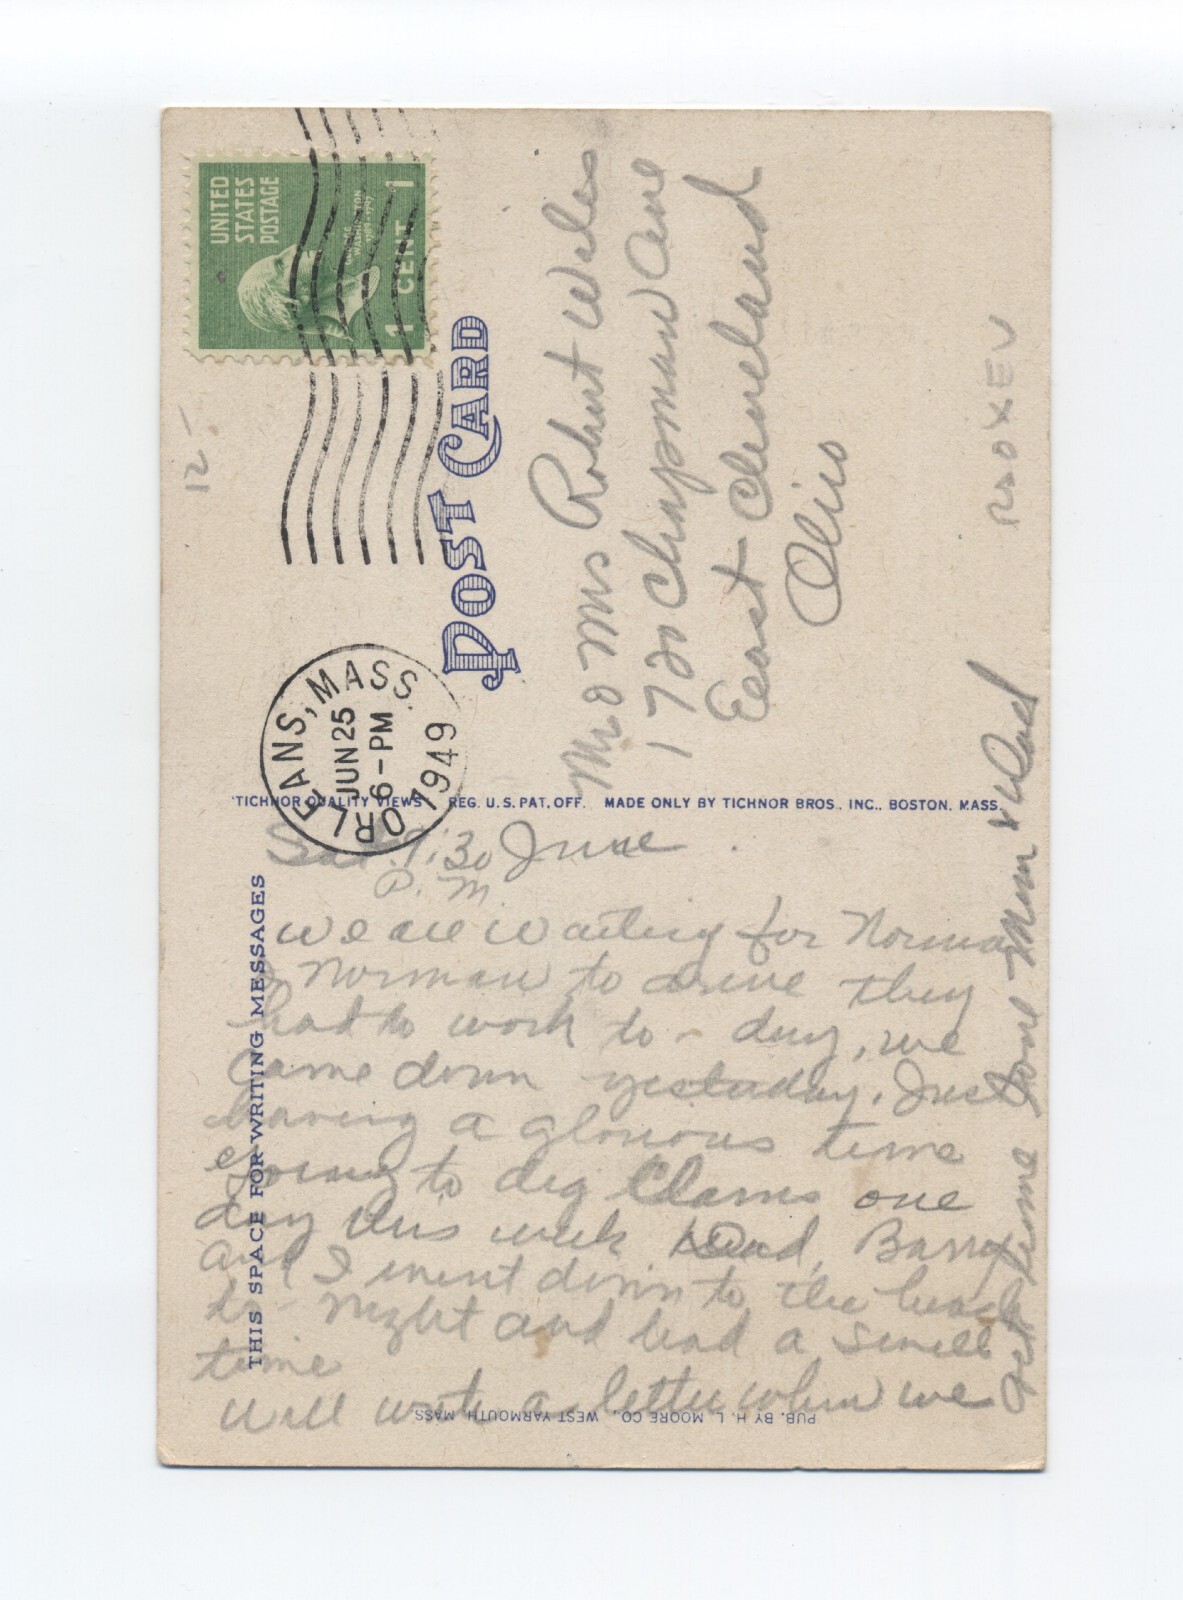 UNITED
STATES
POSTAGE
GEORGE
WASHINGTON
1789-1797
1 CENT 1
12-
ORLEANS, MASS.
JUN 25
6-PM
1949
POST CARD
Mr & Mrs Robert Weles
1720 Chapman Ave
East Cleveland
Ohio
'TICHNOR QUALITY VIEWS' REG. U.S. PAT. OFF. MADE ONLY BY TICHNOR BROS., INC., BOSTON, MASS.
THIS SPACE FOR WRITING MESSAGES
Sat. 9:30 June
P.M.
We are waiting for Norma
& Norman to drive they
had to work to-day, we
came down yesterday. Just
having a glorious time
Going to dig Clams one
day this week Dad, Barry
and I went down to the beach
to-night and had a swell
time
Will write a letter when we
get time Love Mom & Dad
PUB. BY H. L. MOORE CO., WEST YARMOUTH, MASS.